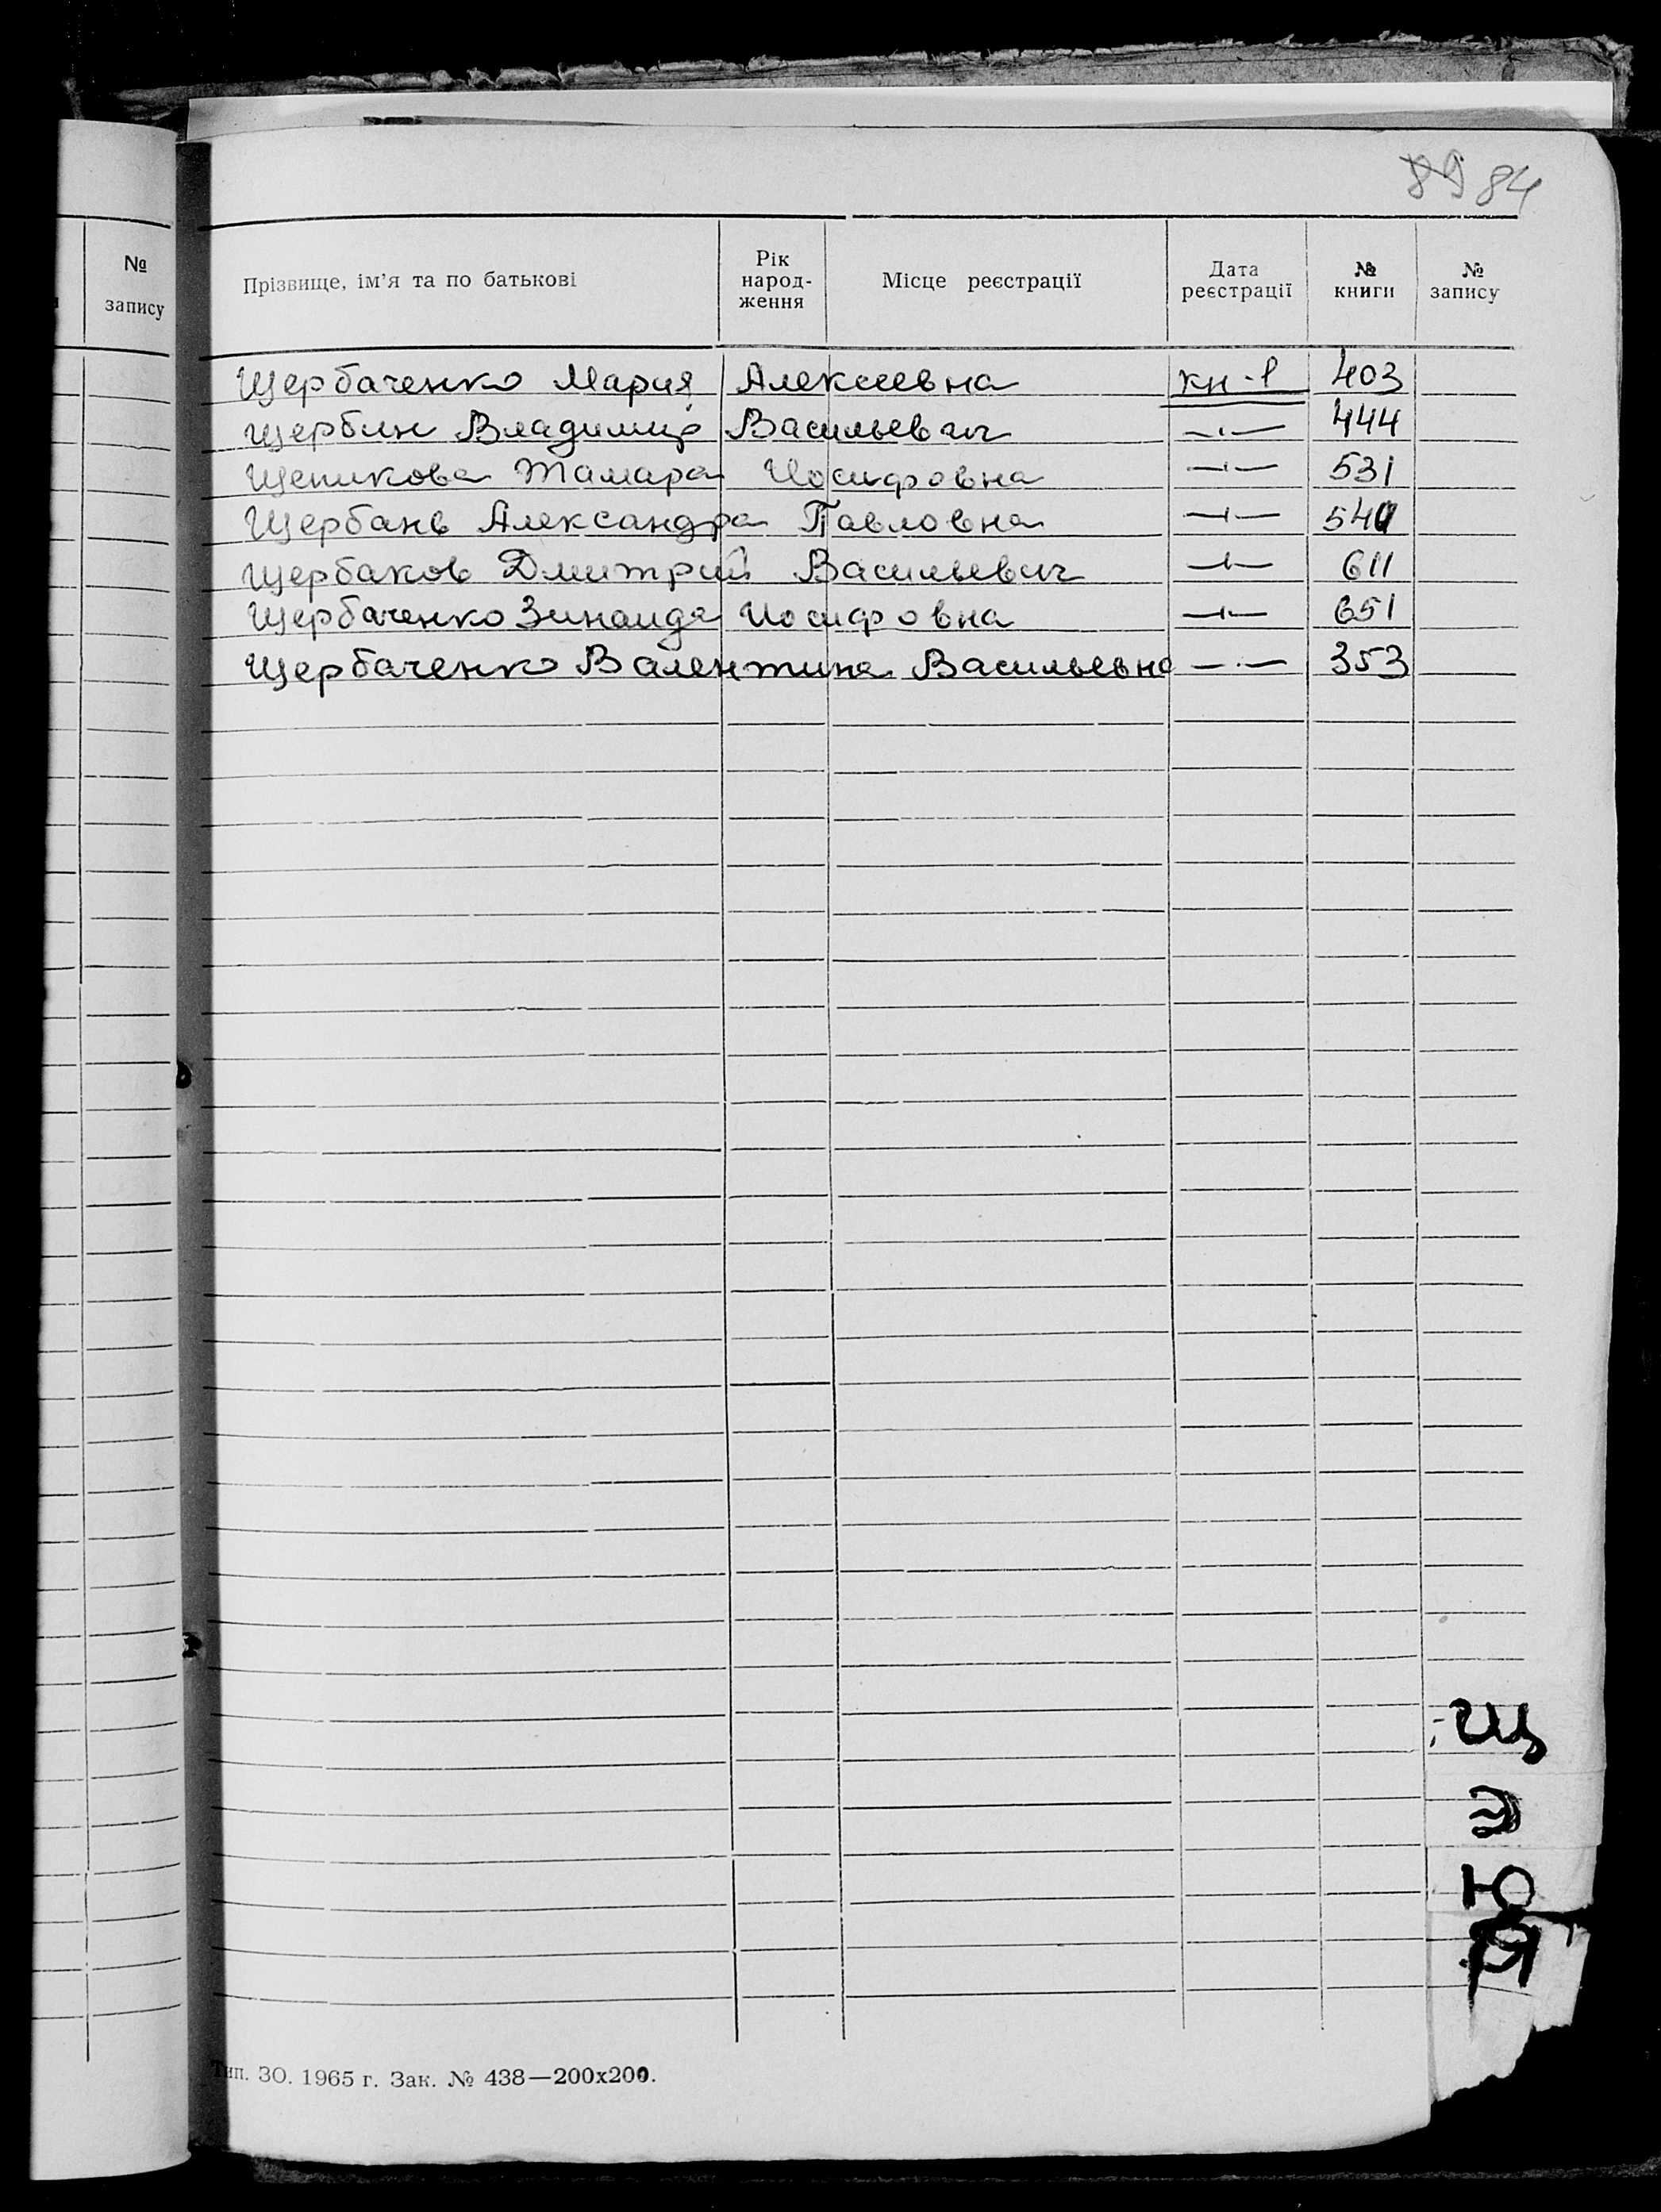 89 84
№ запису
Прізвище, ім’я та по батькові Рік народ- ження Місце реєстрації Дата реєстрації № книги № запису
Щербаченко Мария Алексеевна кн-1 403
Щербин Владимир Васильевич —"— 444
Щепикова Тамара Иосифовна —"— 531
Щербань Александра Павловна —"— 540
Щербаков Дмитрий Васильевич —"— 611
Щербаченко Зинаида Иосифовна —"— 651
Щербаченко Валентина Васильевна —"— 353
Щ
Э
Ю
Я
Тип. ЗО. 1965 г. Зак. № 438—200х200.